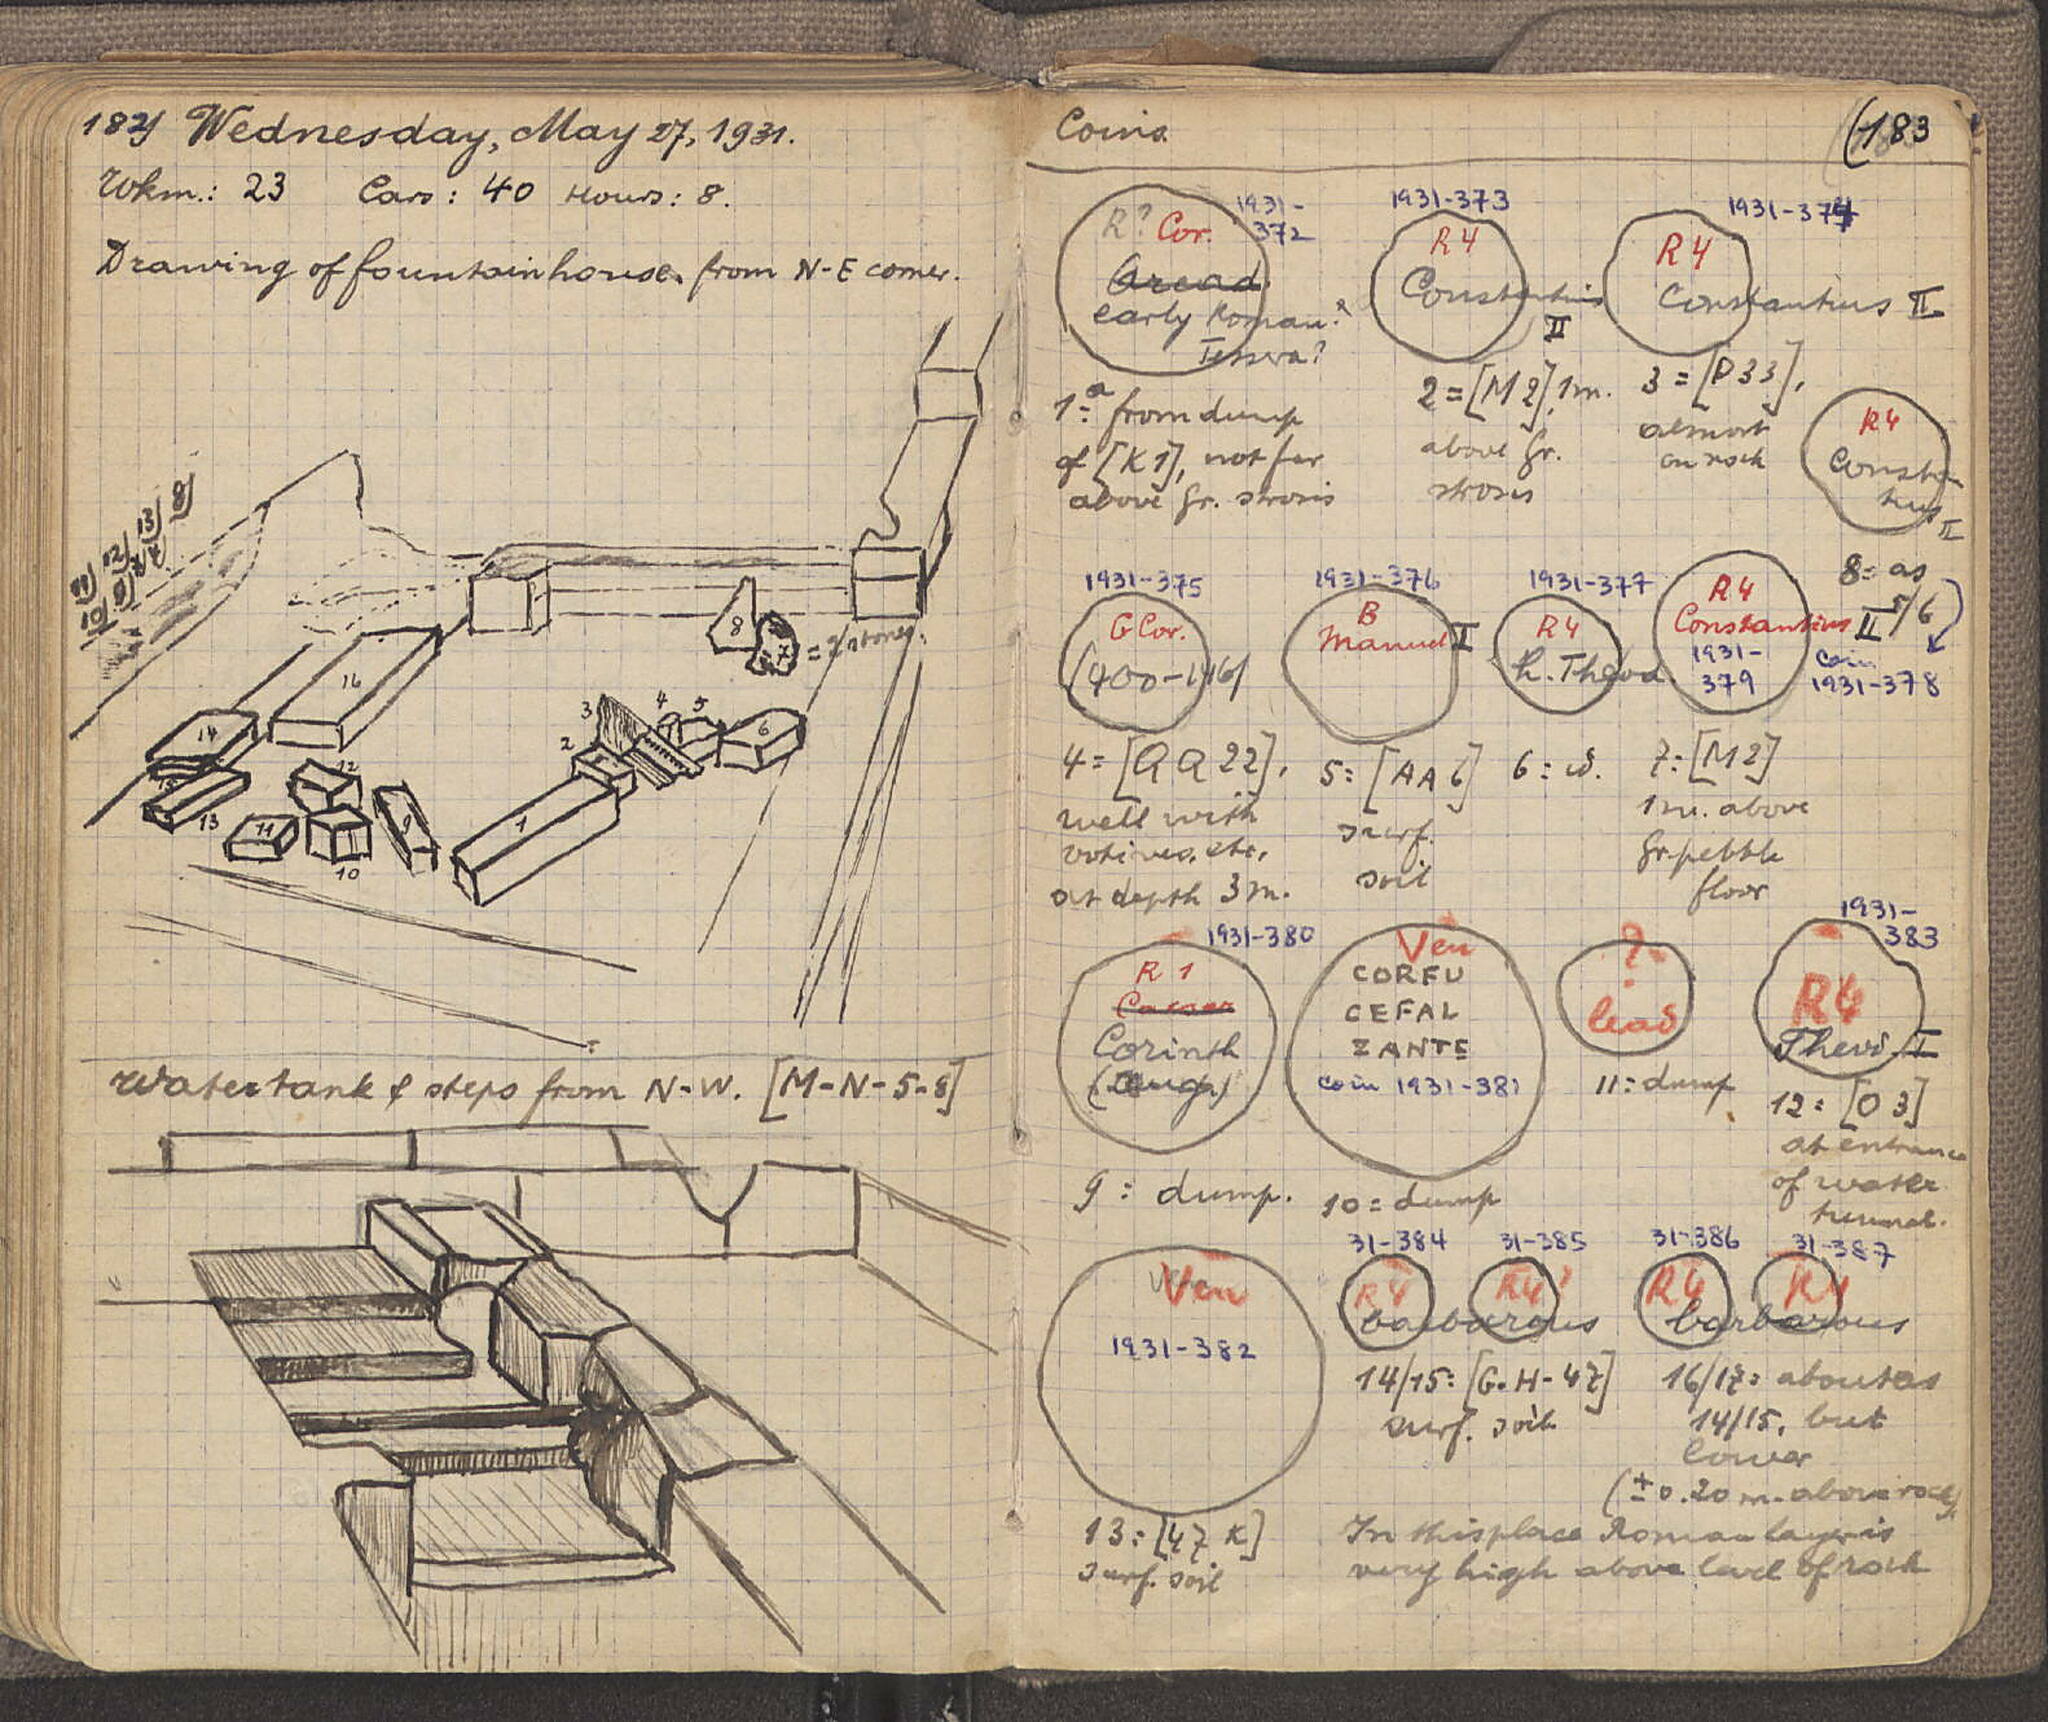 182) Wednesday, May 27, 1931.
Wkm.: 23 Cars: 40 Hours: 8.
Drawing of fountain house, from N-E corner.
11) 12) 13) 8)
10) 9)
16
8
7 = 2 stones.
14
3
4
5
6
2
12
13
11
9
1
10
Watertank & steps from N-W. [M-N-5-8]
Coins
(183
R? Cor.
1931-
372
early Roman?
Tessera?
1931-373
R4
Constantius
II
1931-374
R4
Constantius II
1 = a from dump
of [K1], not far
above Gr. strosis
2 = [M2], 1m.
above Gr.
strosis
3 = [P33],
almost
on rock
R4
Constan-
tius
II
8 = as
5/6
coin
1931-378
1931-375
G Cor.
(400-146)
1931-376
B
Manuel I
1931-377
R4
h. Theod.
R4
Constantius II
1931-
379
4 = [AA22],
well with
votives, etc,
at depth 3m.
5 = [AA6]
surf.
soil
6 = id.
7 = [M2]
1m. above
Gr. pebble
floor
1931-380
R 1
Corinth
Ven
CORFU
CEFAL
ZANTE
coin 1931-381
?
lead
1931-
383
R4
Theod. I
9 = dump.
10 = dump
11 = dump
12 = [O 3]
at entrance
of water
tunnel.
Ven
1931-382
31-384
R4
31-385
R4?
barbarous
31-386
R4
31-387
R4
barbarous
13 = [47 K]
surf. soil
14/15 = [G.H-47]
surf. soil
16/17 = about as
14/15, but
lower
(± 0.20 m. above rock).
In this place Roman layer is
very high above level of rock